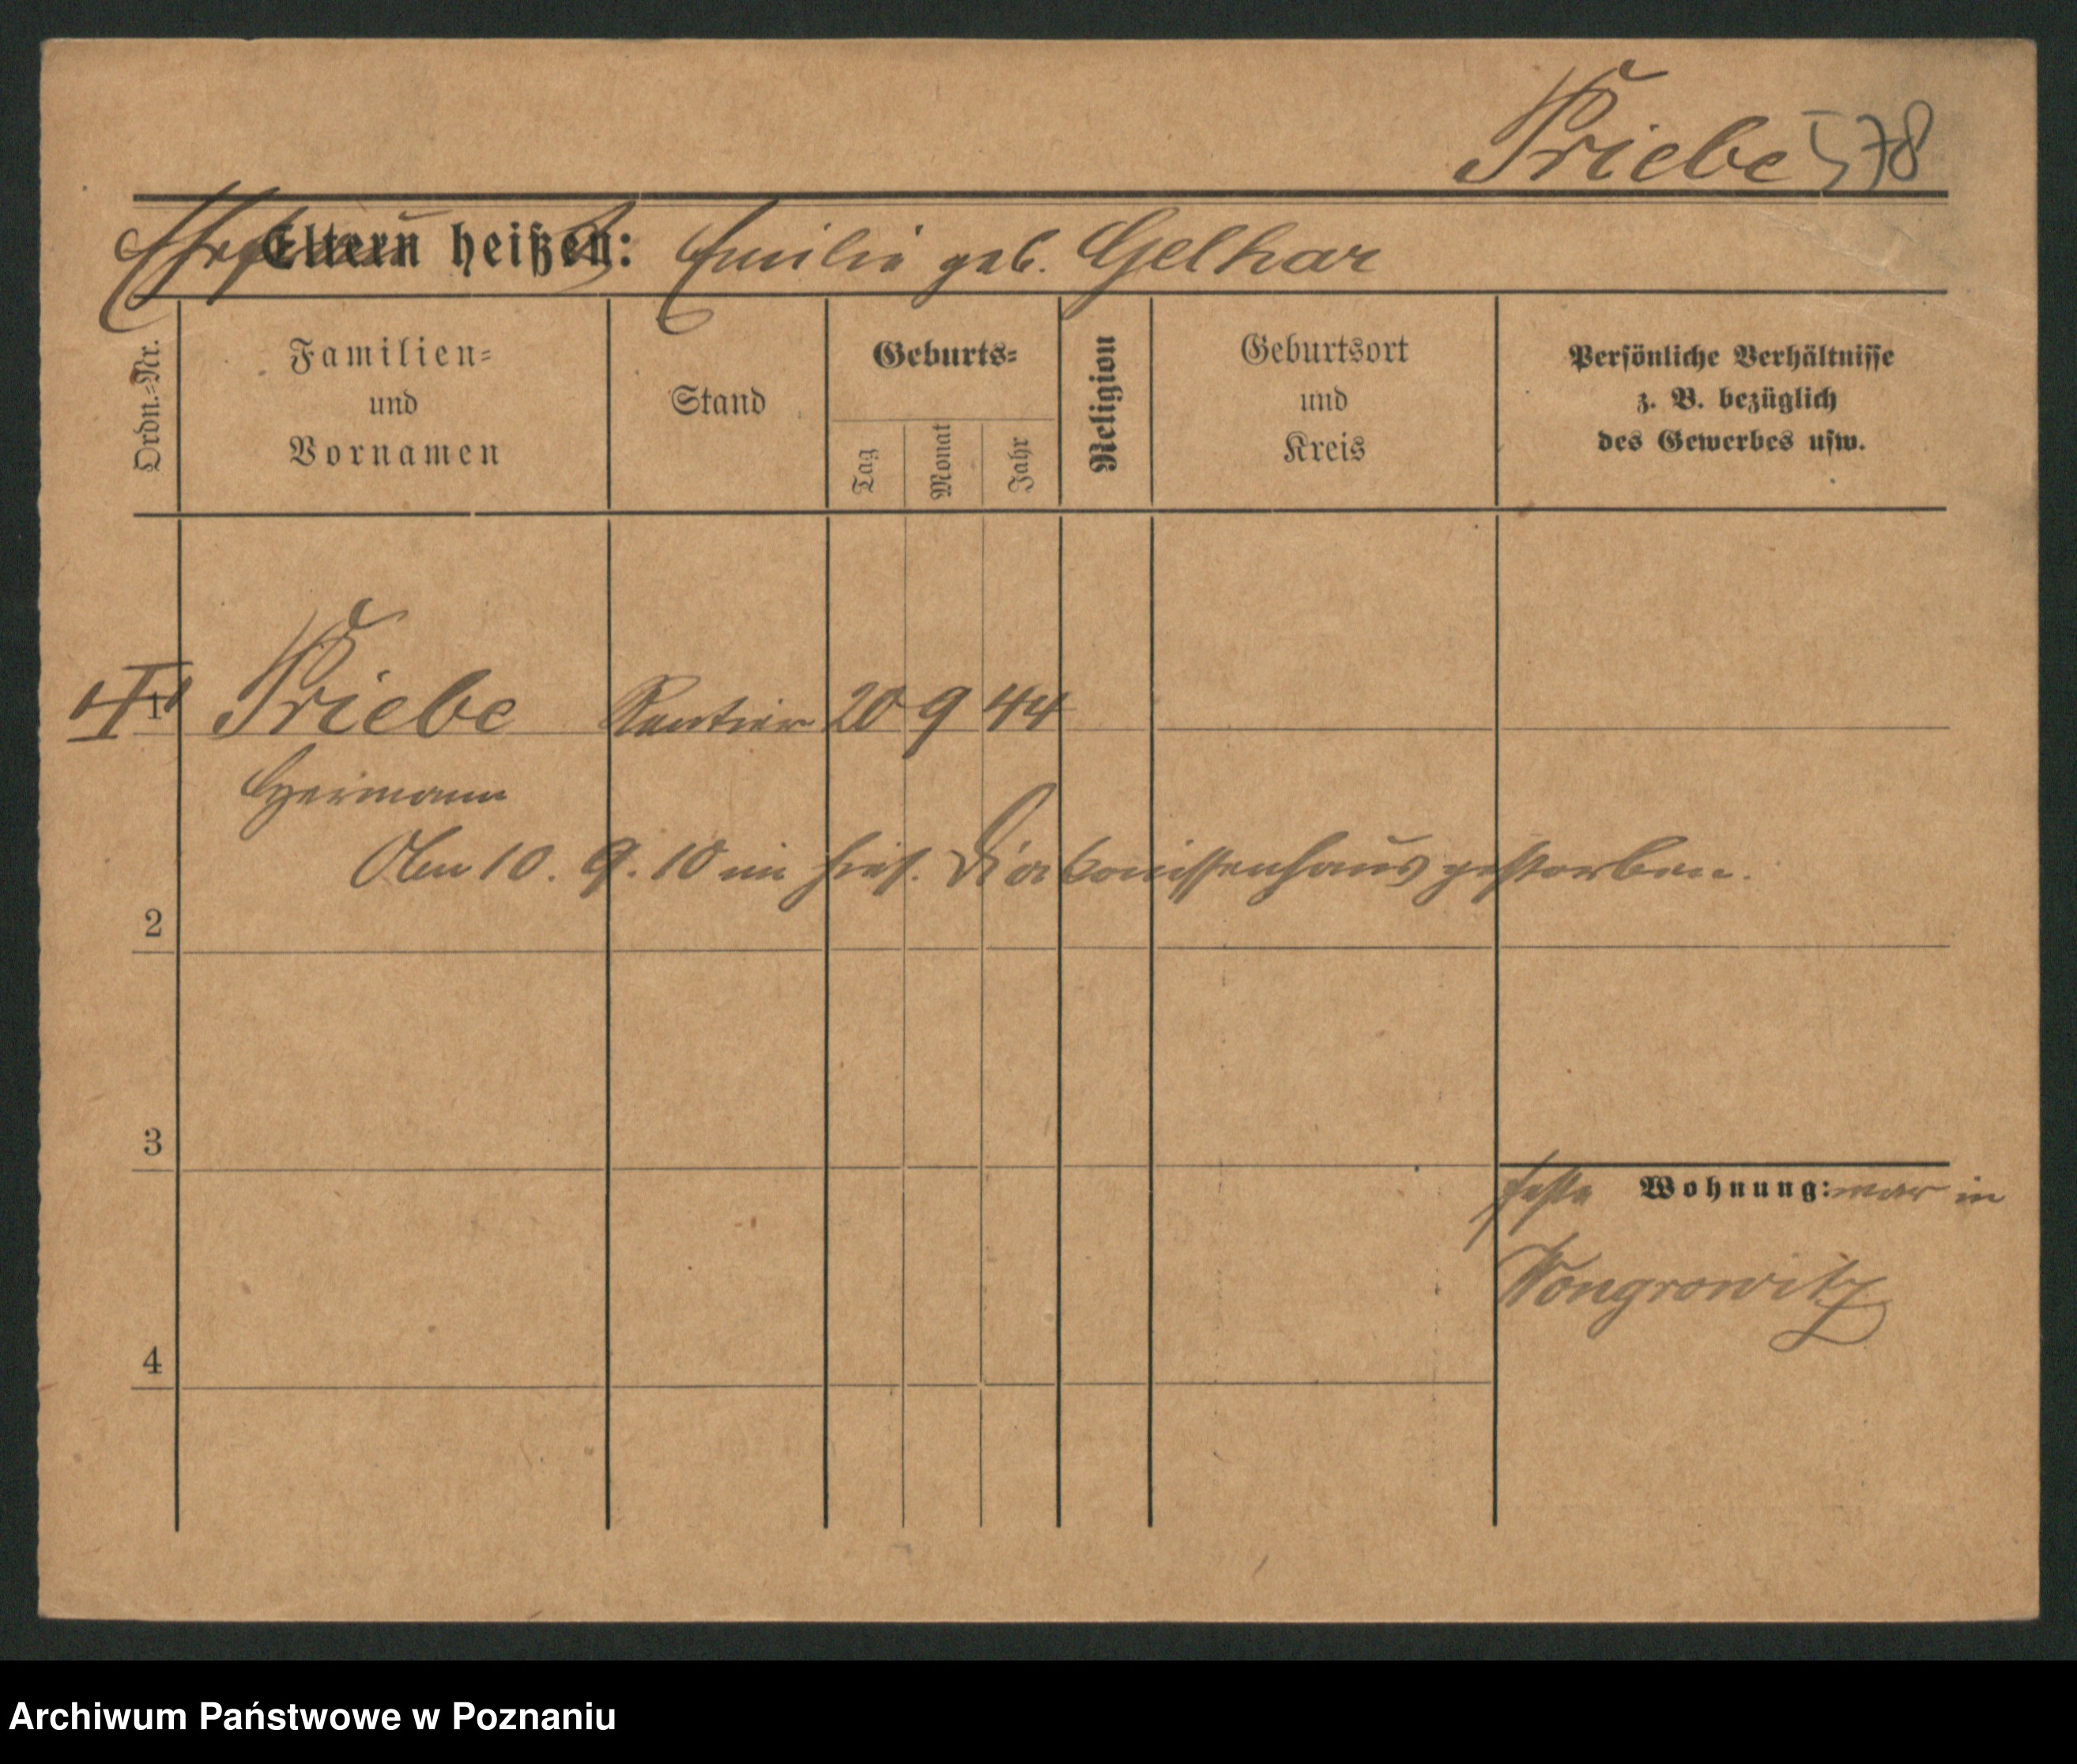 Priebe 578
Eltern heißen: Ehefrau Emilie geb. Gelhar
Ordn.=Nr.
Familien=
und
Vornamen
Stand
Geburts=
Tag
Monat
Jahr
Religion
Geburtsort
und
Kreis
Persönliche Verhältnisse
z. B. bezüglich
des Gewerbes usw.
1 Priebe Rentier 20 9 44
Hermann
Am 10. 9. 10 im hies. Diakonissenhaus gestorben.
2
3
feste Wohnung: war in
Wongrowitz
4
Archiwum Państwowe w Poznaniu